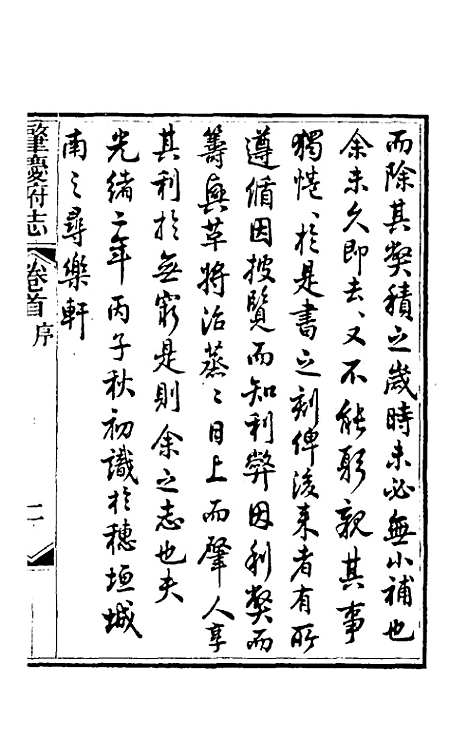 而除其獘積之歲時未必無小補也
余未久即去又不能躬親其事
獨惓〻於是書之刻俾後来者有所
遵循因披覽而知利弊因利獘而
籌興革將治蒸〻日上而肇人享
其利於無窮是則余之志也夫
光緒二年丙子秋初識於穗垣城
南之尋樂軒
肇慶府志 卷首 序 二